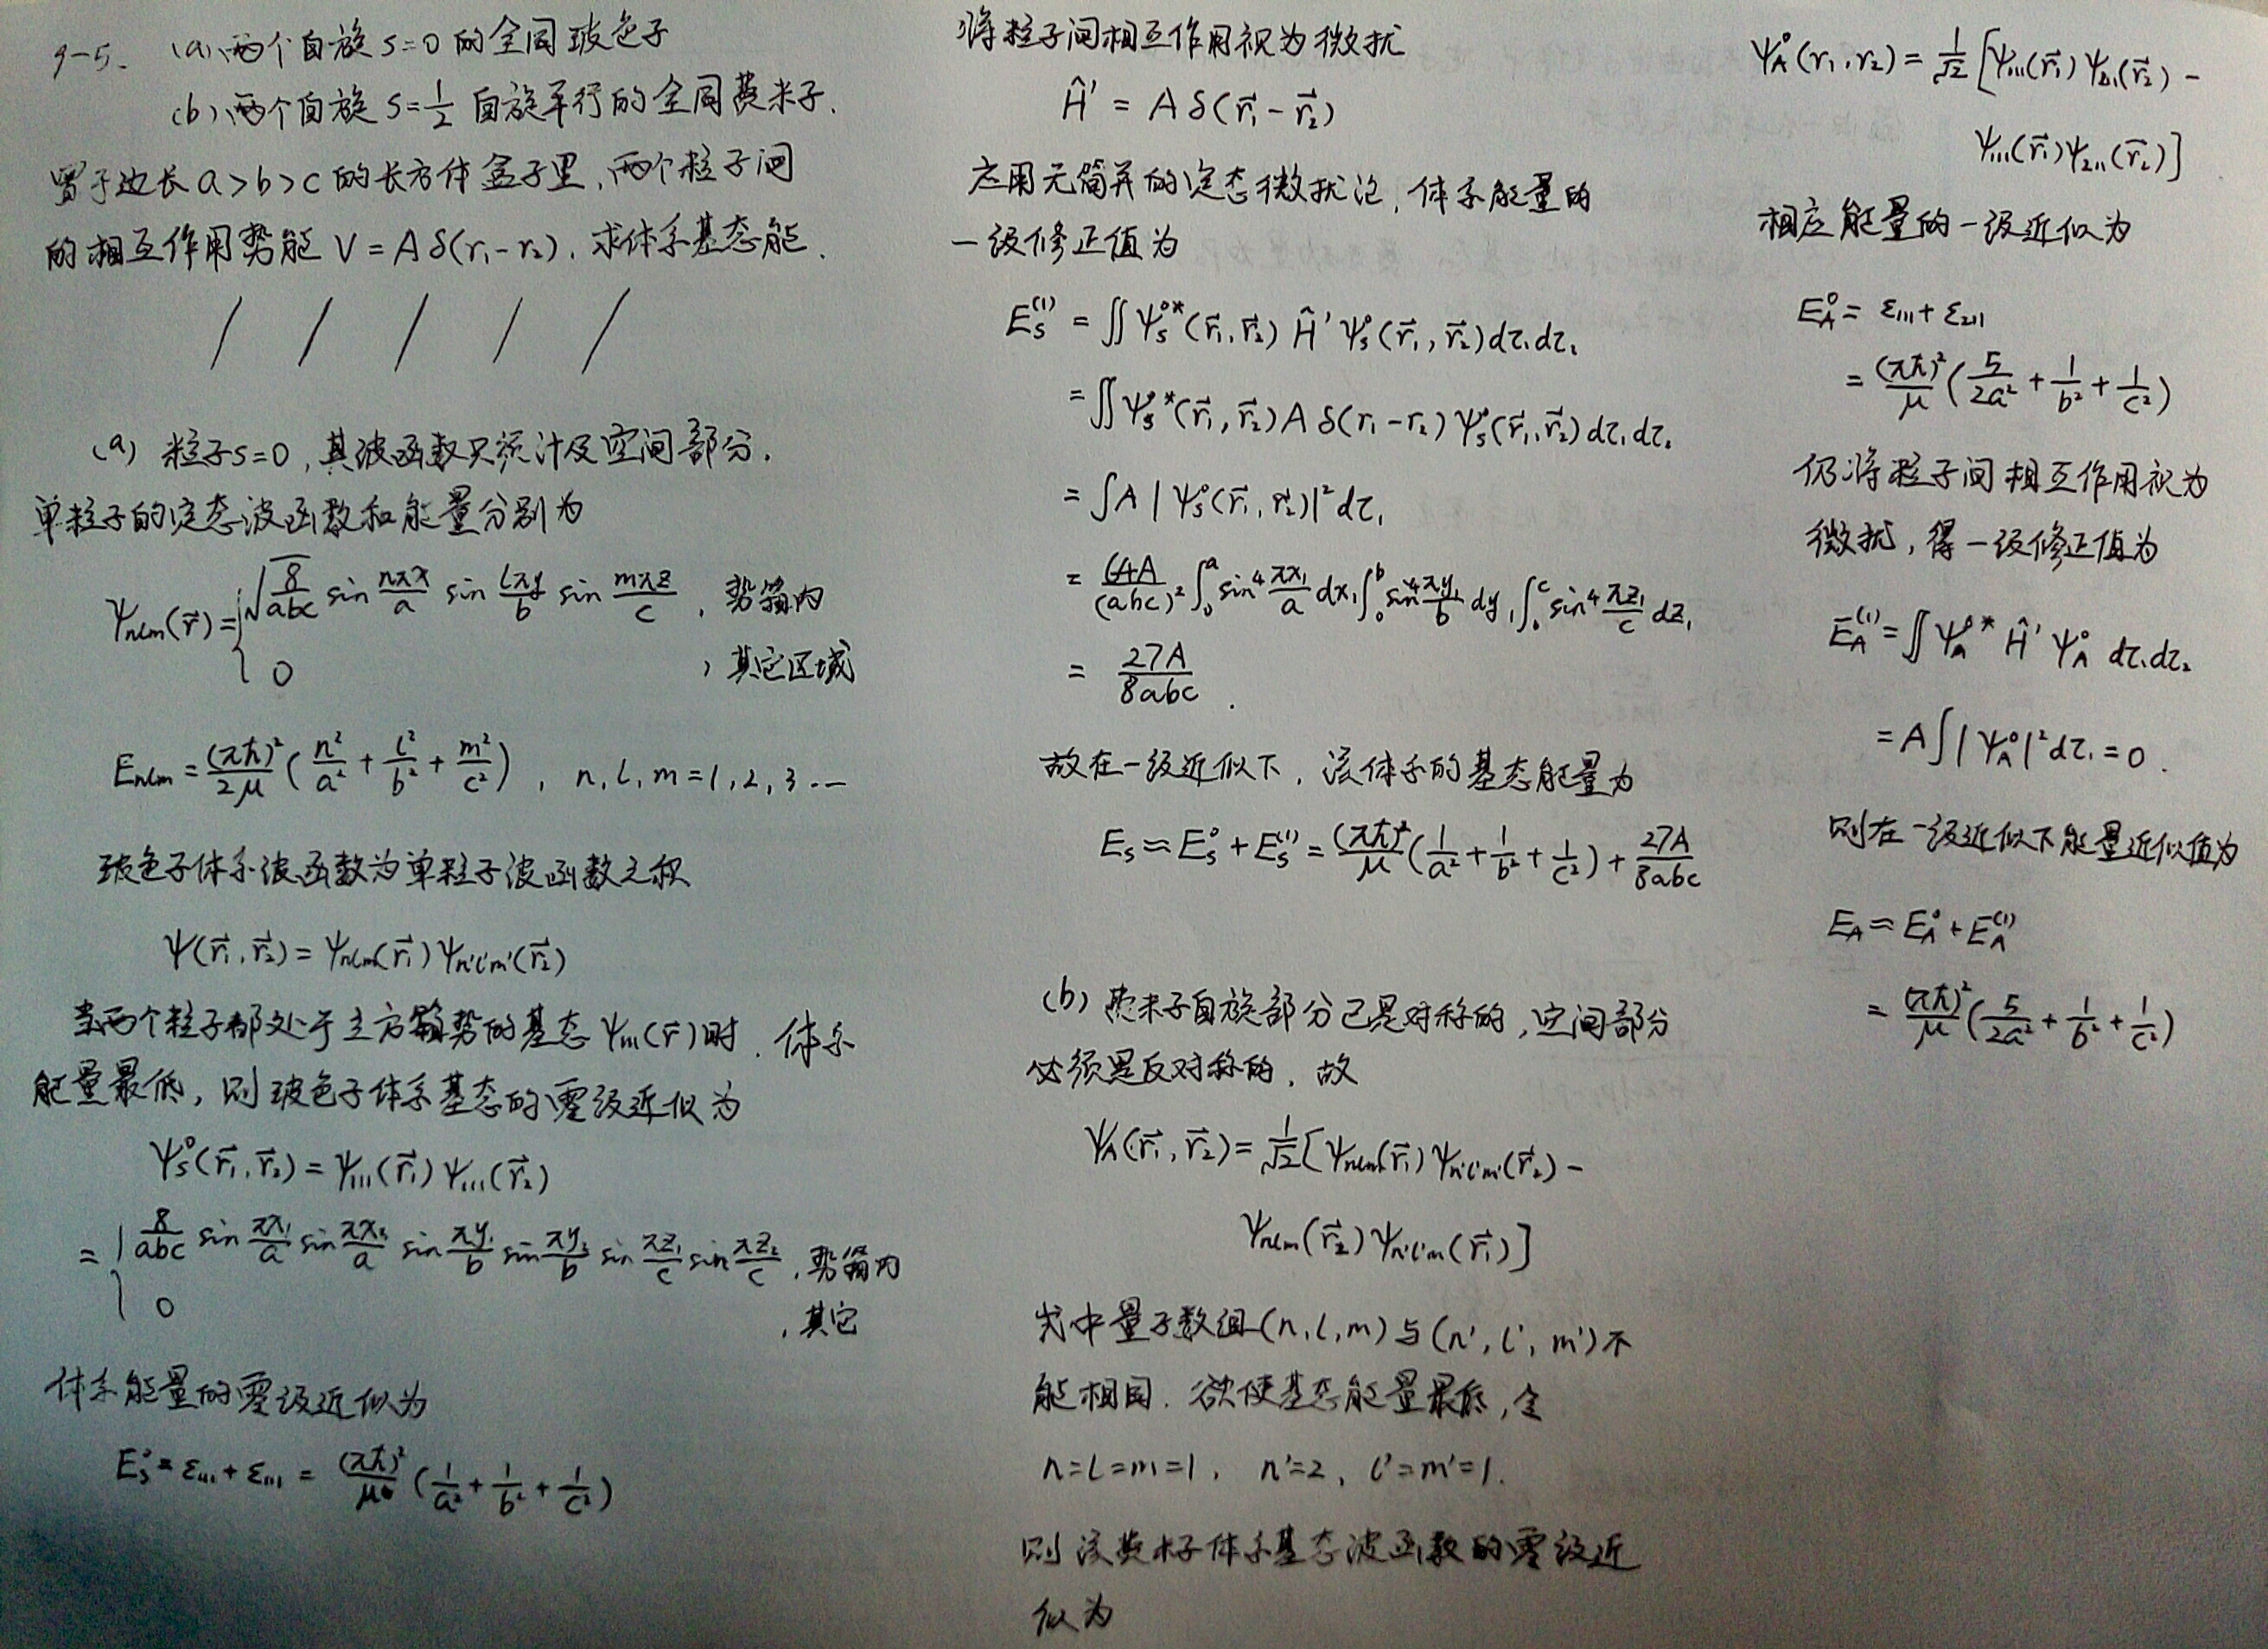 9-5. (a)、两个自旋 s=0 的全同玻色子
(b)、两个自旋 s=1/2 自旋平行的全同费米子.
置于边长 a>b>c 的长方体盒子里,两个粒子间
的相互作用势能 V=Aδ(r₁-r₂). 求体系基态能.
/ / / / /
(a) 粒子s=0,其波函数只须计及空间部分.
单粒子的定态波函数和能量分别为
ψnlm(r⃗)={√(8/abc) sin nπx/a sin lπy/b sin mπz/c , 势箱内
0 , 其它区域
Enlm=(πħ)²/2μ (n²/a² + l²/b² + m²/c²) , n, l, m=1,2,3...
玻色子体系波函数为单粒子波函数之积
ψ(r⃗₁,r⃗₂)=ψnlm(r⃗₁)ψn'l'm'(r⃗₂)
当两个粒子都处于立方箱势的基态 ψ₁₁₁(r⃗)时. 体系
能量最低, 则玻色子体系基态的零级近似为
ψs⁰(r⃗₁,r⃗₂)=ψ₁₁₁(r⃗₁)ψ₁₁₁(r⃗₂)
={8/abc sin πx₁/a sin πx₂/a sin πy₁/b sin πy₂/b sin πz₁/c sin πz₂/c , 势箱内
0 , 其它
体系能量的零级近似为
Es⁰=ε₁₁₁+ε₁₁₁ = (πħ)²/μ (1/a²+1/b²+1/c²)
将粒子间相互作用视为微扰
Ĥ' = Aδ(r⃗₁-r⃗₂)
应用无简并的定态微扰论, 体系能量的
一级修正值为
Es⁽¹⁾ = ∬ψs⁰*(r⃗₁,r⃗₂) Ĥ' ψs⁰(r⃗₁,r⃗₂)dτ₁dτ₂
=∬ψs⁰*(r⃗₁,r⃗₂)Aδ(r₁-r₂)ψs⁰(r⃗₁,r⃗₂)dτ₁dτ₂
=∫A|ψs⁰(r⃗₁,r⃗₂)|²dτ₁
=64A/(abc)² ∫₀ᵃ sin⁴ πx₁/a dx₁ ∫₀ᵇ sin⁴ πy₁/b dy₁ ∫₀ᶜ sin⁴ πz₁/c dz₁
= 27A/8abc .
故在一级近似下, 该体系的基态能量为
Es≈Es⁰+Es⁽¹⁾=(πħ)²/μ (1/a²+1/b²+1/c²)+27A/8abc
(b) 费米子自旋部分已是对称的,空间部分
必须是反对称的, 故
ψA(r⃗₁,r⃗₂)=1/√2[ψnlm(r⃗₁)ψn'l'm'(r⃗₂)-
ψnlm(r⃗₂)ψn'l'm(r⃗₁)]
式中量子数组(n,l,m)与(n',l',m')不
能相同. 欲使基态能量最低,令
n=l=m=1, n'=2, l'=m'=1.
则该费米子体系基态波函数的零级近
似为
ψA⁰(r₁,r₂)=1/√2[ψ₁₁₁(r⃗₁)ψ₂₁₁(r⃗₂)-
ψ₁₁₁(r⃗₁)ψ₂₁₁(r⃗₂)]
相应能量的一级近似为
EA⁰= ε₁₁₁+ε₂₁₁
=(πħ)²/μ (5/2a²+1/b²+1/c²)
仍将粒子间相互作用视为
微扰, 得一级修正值为
EA⁽¹⁾=∬ψA⁰* Ĥ' ψA⁰ dτ₁dτ₂
=A∫|ψA⁰|²dτ₁=0.
则在一级近似下能量近似值为
EA≈EA⁰+EA⁽¹⁾
=(πħ)²/μ (5/2a²+1/b²+1/c²)